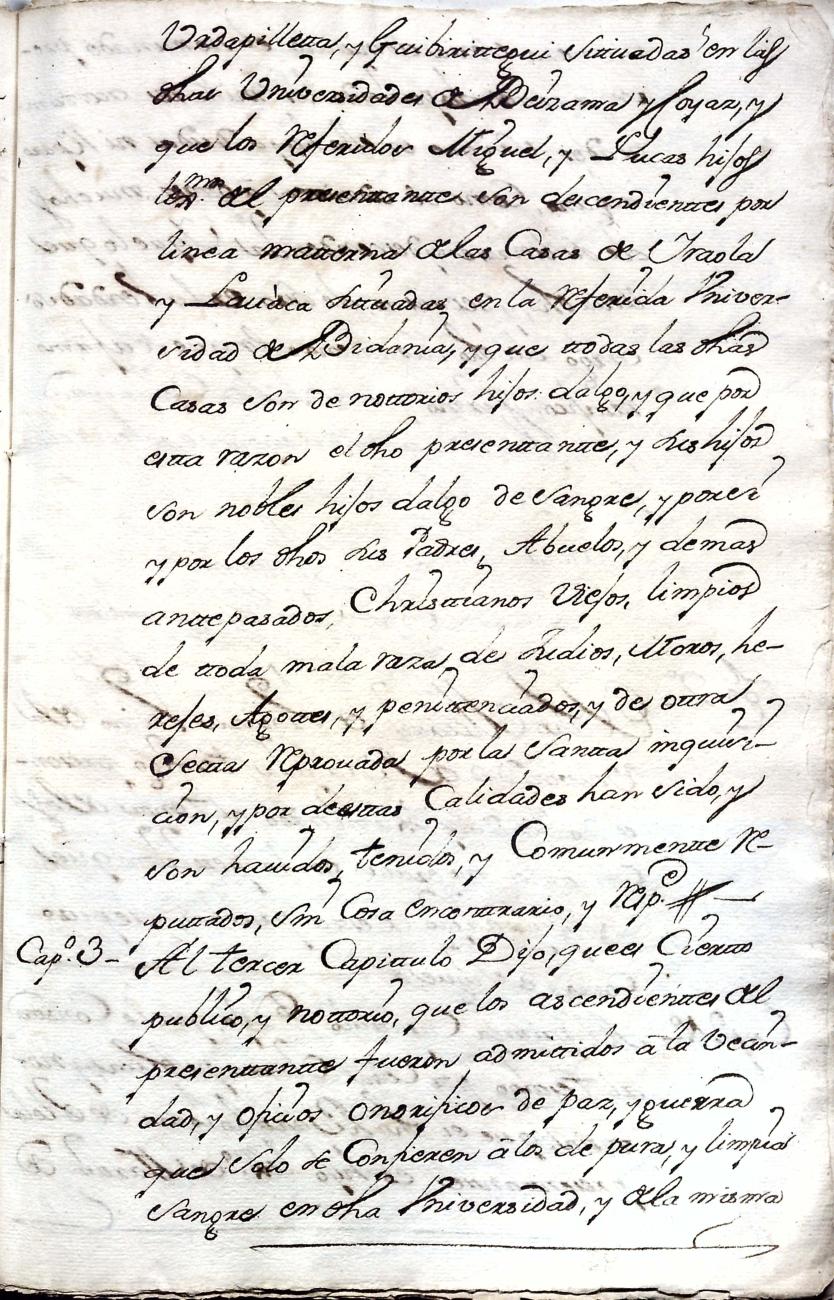 Urdapilletta, y Guibirittegui situadas en las
dhas Universidades de Beizama y Goyaz, y
que los Referidos Miguel, y Lucas hijos
lexmos del presenttantte son descendienttes por
linea matterna de las Casas de Iraola
y Lauaca situadas en la Referida Univer-
sidad de Bidania, y que ttodas las dhas
Casas son de nottorios hijos dalgo, y que por
estta razon el dho presenttantte, y sus hijos
son nobles hijos dalgo de Sangre, y por si
y por los dhos sus Padres, Abuelos, y demas
anttepasados, Christtianos Viejos, limpios
de ttoda mala raza, de Judios, Moros, he-
rejes, Agottes, y penittenciados, y de ottra
Sectta Reprouada por la Santta inquisi-
cion, y por de esttas Calidades han sido, y
son hauidos, tenidos, y Comunmentte Re-
puttados, sin Cosa en conttrario, y Respe
Capo. 3 - Al tercer Capittulo Dijo, que es Ciertto
publico, y nottorio, que los ascendienttes del
presenttantte fueron admittidos â la Vecin-
dad, y oficios onorificos de paz, y guerra
que solo se Confieren â los de pura, y limpia
Sangre en dha Universidad, y de la misma